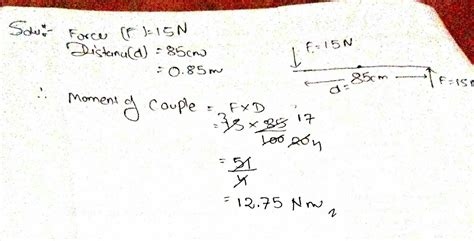 Solu:- Force (F) = 15N
Distance(d) = 85cm
= 0.85m
F=15N
d= 85cm
F=15N
∴ Moment of Couple = F×D
= 15 × 85 17
100 20 4
= 51
4
= 12.75 Nm